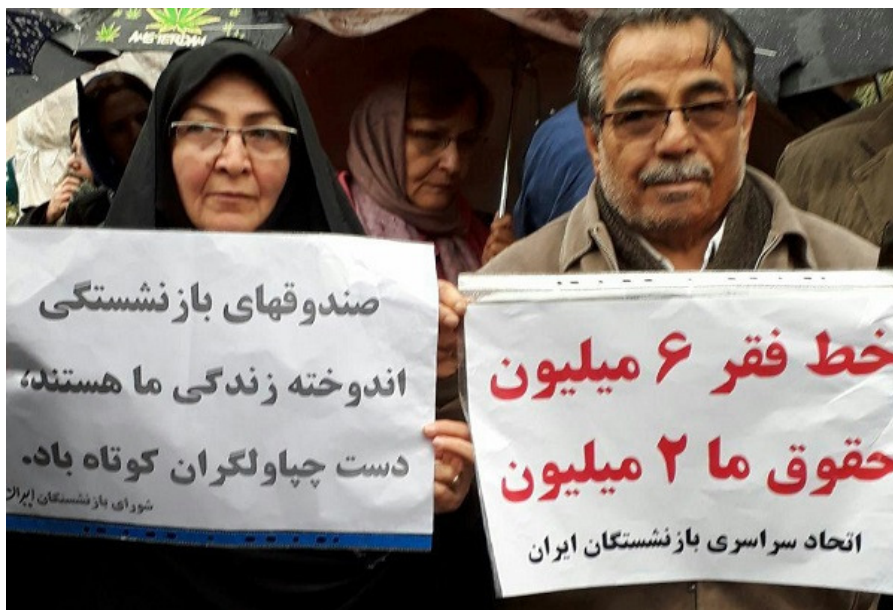 AMSTERDAM
صندوقهای بازنشستگی
اندوخته زندگی ما هستند،
دست چپاولگران کوتاه باد.
شورای بازنشستگان ایران
خط فقر ۶ میلیون
حقوق ما ۲ میلیون
اتحاد سراسری بازنشستگان ایران